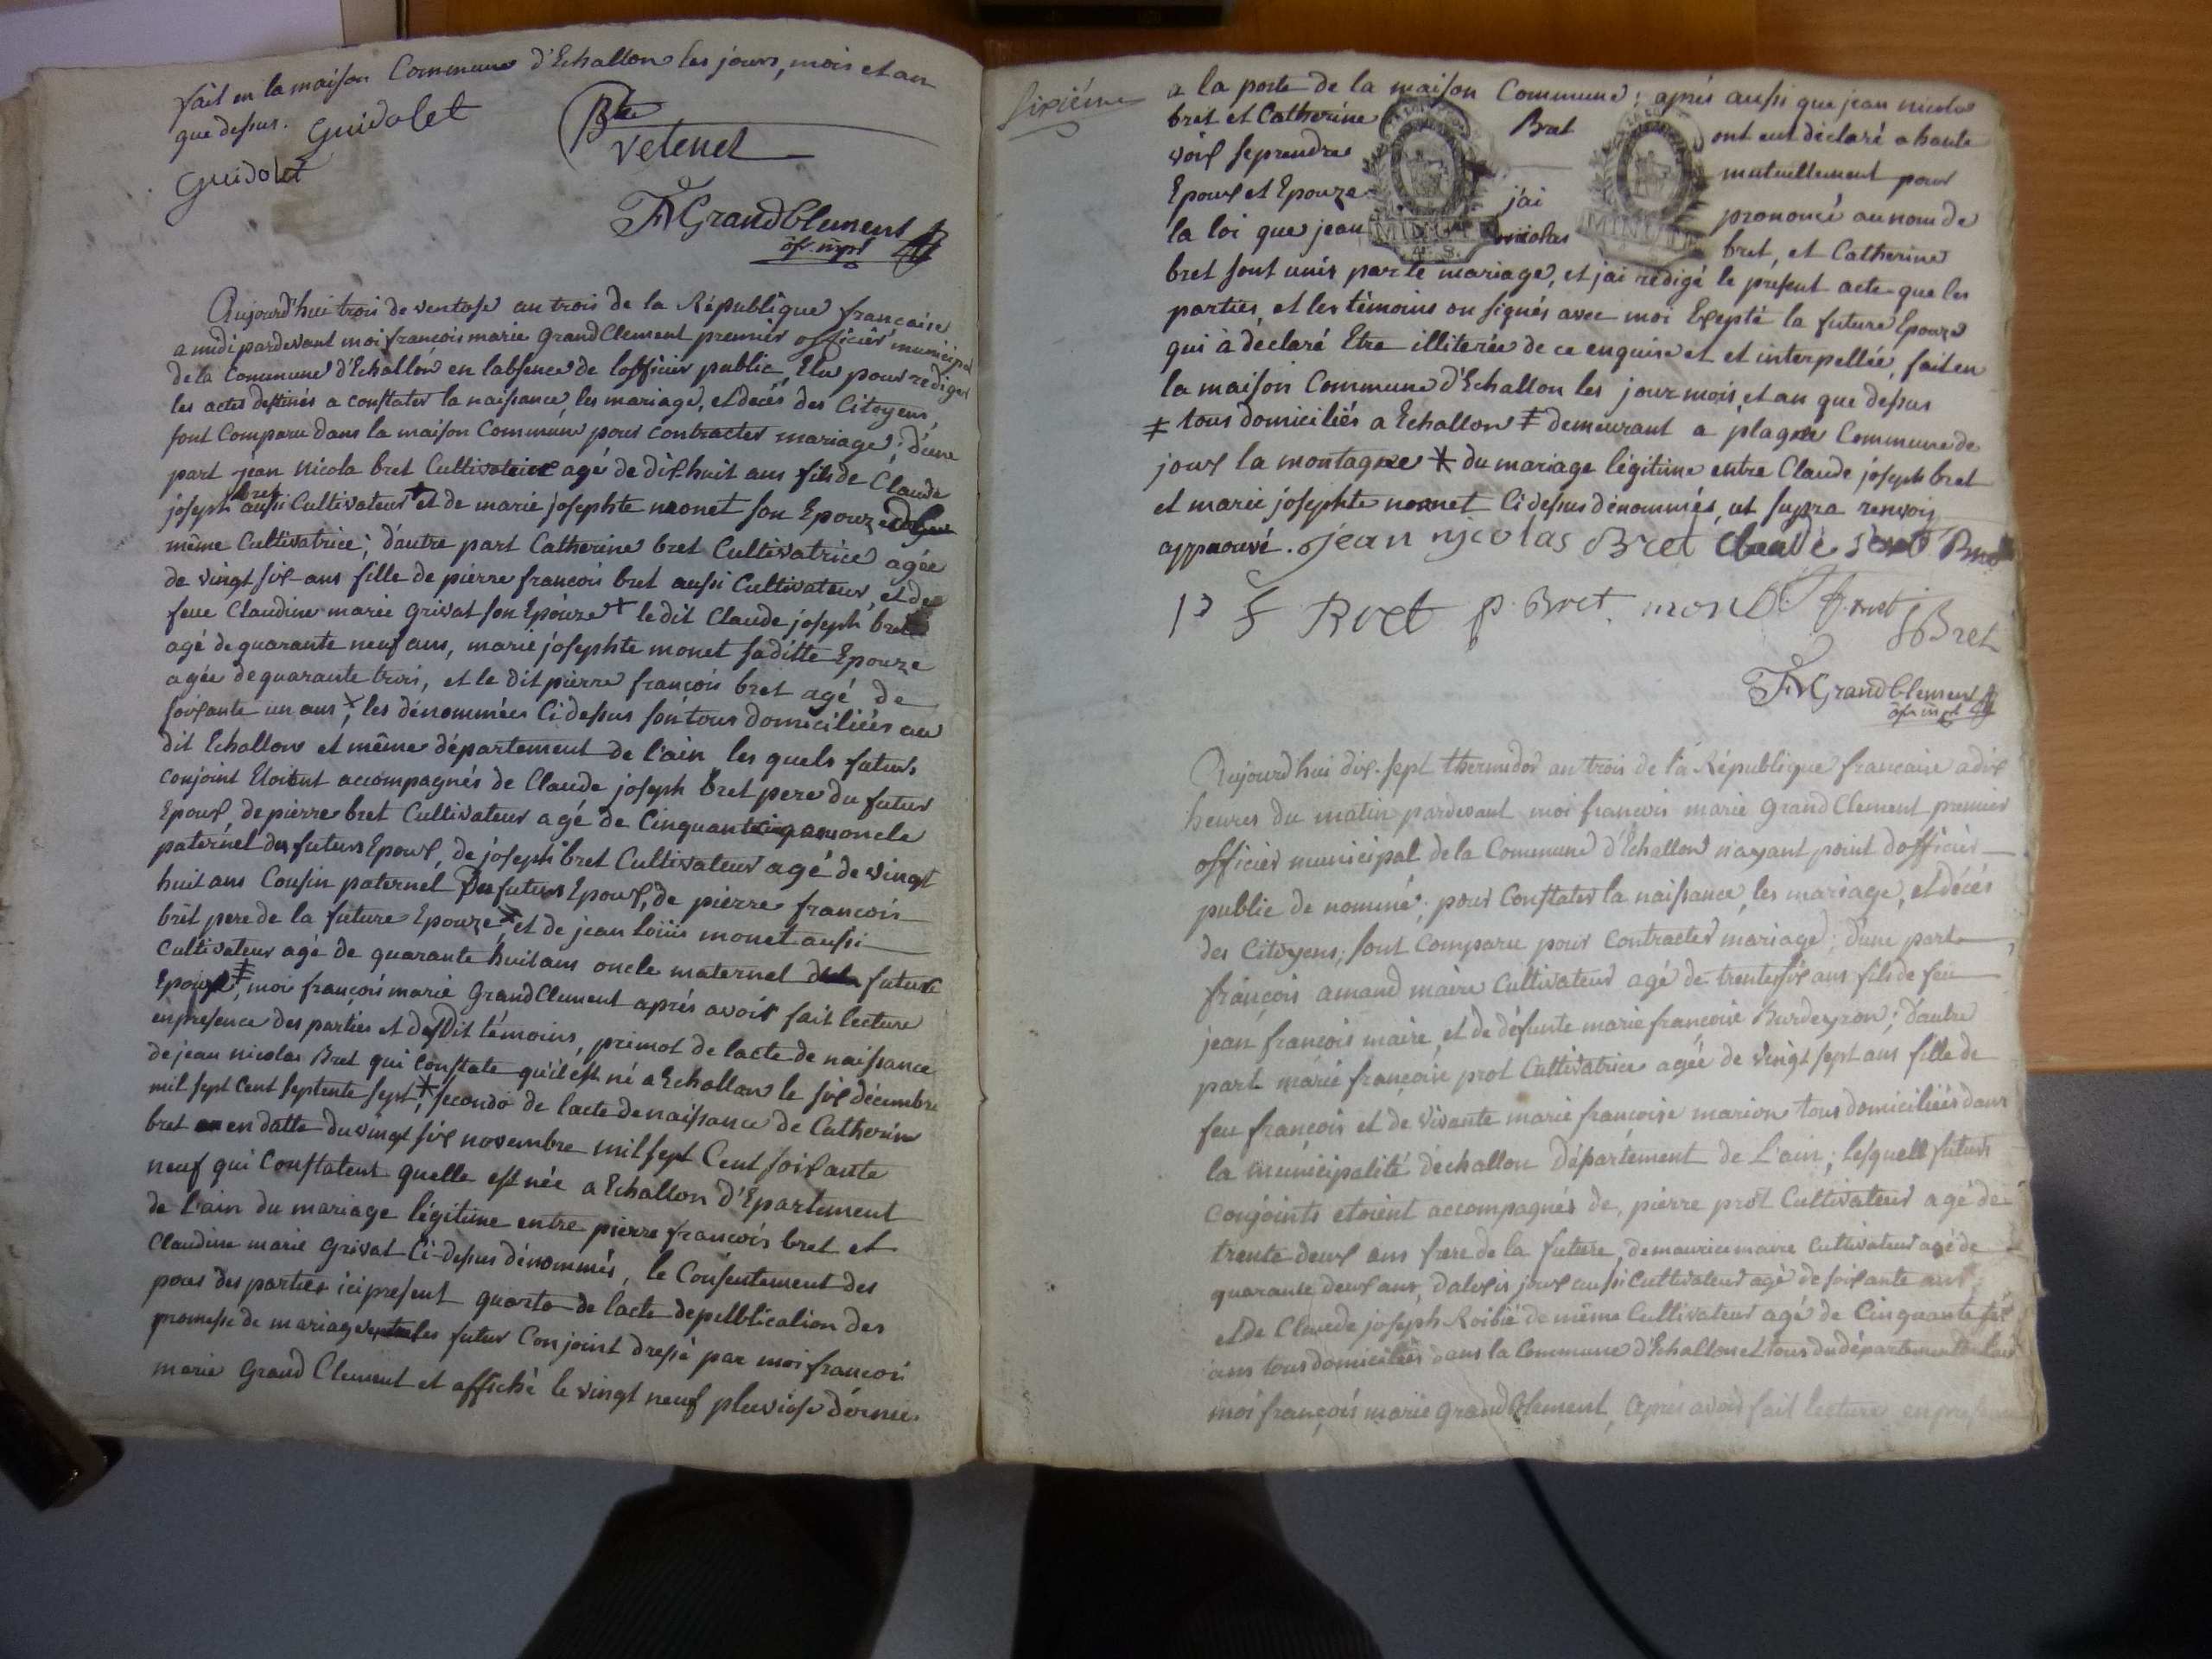 fait en la maison Commune d'Echallon les jours, mois et an
que dessus. Guidolet
Bte
vetenet
Guidolet
FMGrandClement
off. mpl
Aujourd'hui trois de ventose an trois de la République francaise
a midi pardevant moi francois marie GrandClement premier officier municipal
de la Commune d'Echallon en labsence de lofficier public, Elu pour rediger
les actes destinés a constater la naissance, les mariage, et decès des Citoyens
sont Comparu dans la maison Commune pour contracter mariage; d'une
part jean Nicola bret Cultivateur agé de dix-huit ans fils de Claude
joseph bret aussi Cultivateur et de marie josephte monet son Epouze
même Cultivatrice; d'autre part Catherine bret Cultivatrice agée
de vingt six ans fille de pierre francois bret aussi Cultivateur, et de
feue Claudine marie grivat son Epouze + le dit Claude joseph bret
agé de quarante neuf ans, marie josephte monet saditte Epouze
agée de quarante trois, et le dit pierre françois bret agé de
soixante un ans, les dénommées Ci dessus son tous domiciliées au
dit Echallon et même département de l'ain les quels futurs
conjoint Etoient accompagnés de Claude joseph bret pere du futur
Epoux, de pierre bret Cultivateur agé de Cinquante cinq ans oncle
paternel du futurs Epoux, de joseph bret Cultivateur agé de vingt
huit ans Cousin paternel Du futurs Epoux, de pierre francois
bret pere de la future Epouze et de jean loüis monet aussi
Cultivateur agé de quarante huit ans oncle maternel future
Epoux ‡, moi françois marie GrandClement après avoir fait lecture
en presence des parties et desDit témoins, primot de lacte de naissance
de jean nicolas Bret qui Constate qu'il est né a Echallon le six décembre
mil sept Cent septente sept *, secondo de lacte de naissance de Catherine
bret en datte du vingt six novembre mil sept Cent soixante
neuf qui Constatent quelle est née a Echallon d'Epartement
de l'ain du mariage légitime entre pierre francois bret et
Claudine marie Grivat Ci-dessus dénommés, le Consentement des
peres des parties ici present quarto de lacte de publication des
promesse de mariage entre les futur Conjoint dressé par moi francois
marie Grand Clement et affiché le vingt neuf pluviose dernier
Sixiéme
a la porte de la maison Commune; après aussi que jean nicolas
bret et Catherine Bret ont eut déclaré a haute
voix se prendre mutuellement pour
Epoux et Epouze j'ai prononcé au nom de
la loi que jean nicolas bret, et Catherine
MINUTE
MINUTE
bret sont unis par le mariage, et j'ai redigé le présent acte que les
parties, et les témoins on signés avec moi Excepté la future Epouze
qui à déclaré Etre illiterée de ce enquise et et interpellée, fait en
la maison Commune d'Echallon les jour mois, et an que dessus
‡ tous domiciliés a Echallon ‡ demeurant a plagne Commune de
joux la montagne * du mariage légitime entre Claude joseph bret
et marie josephte monet Ci dessus dénommés, ut supra renvois
approuvé. jean nicolas Bret Claude
Bret p. Bret. monet JBret
FMGrandClement
off. mpl
Aujourd'hui dix-sept thermidor an trois de la République francaise a dix
heures du matin pardevant moi francois marie GrandClement premier
officier municipal de la Commune d'Echallon n'ayant point dofficier
public de nommé; pour Constater la naissance, les mariage, et décès
des Citoyens; sont Comparu pour Contracter mariage; d'une part
françois amand maire Cultivateur agé de trente six ans fils de feu
jean francois maire, et de défunte marie francoise Burdeyron; d'autre
part marie francoise prot Cultivatrice agée de vingt sept ans fille de
feu francois et de vivante marie francoise marion tous domiciliées dans
la municipalité dechallon Département de L'ain; lesquell futurs
conjoints etoient accompagnés de, pierre prot Cultivateur agé de
trente deux ans frere de la future, de maurice maire Cultivateur agé de
quarante deux ans, dalexis joux aussi Cultivateur agé de soixante ans,
et de Claude joseph Roibié de même Cultivateur agé de Cinquante sept
ans tous domiciliées dans la Commune d'Echallon et tous du département de lain
moi françois marie GrandClement, après avoir fait lecture en